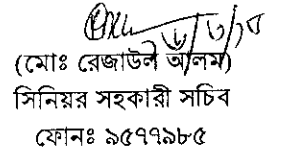 (মোঃ রেজাউল আলম)
সিনিয়র সহকারী সচিব
ফোনঃ ৯৫৭৭৯৮৫